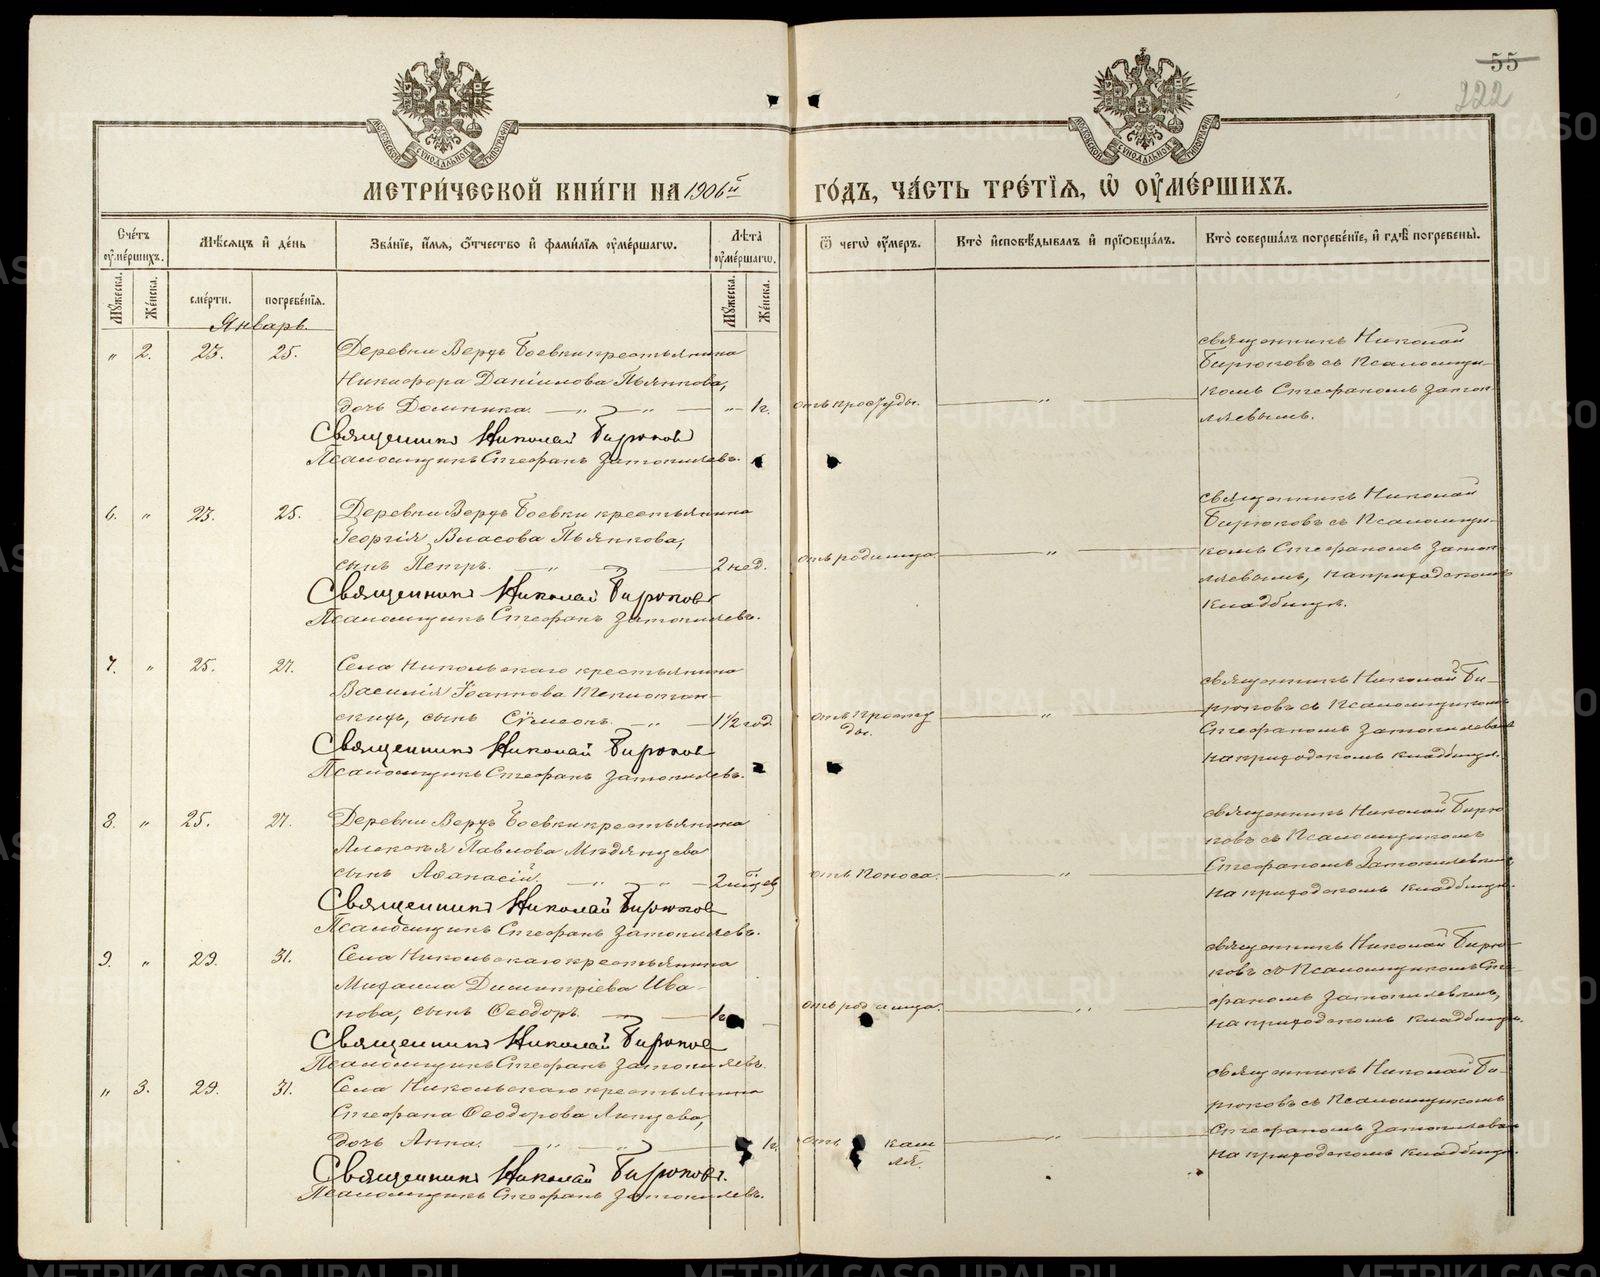 55
222
МОСКОВСКОЙ СѴНОДАЛЬНОЙ ТИПОГРАФІИ
МОСКОВСКОЙ СѴНОДАЛЬНОЙ ТИПОГРАФІИ
МЕТРИ́ЧЕСКОЙ КНИ́ГИ НА 1906й ГО́ДЪ, ЧА́СТЬ ТРЕ́ТІѦ, Ѡ҆ ОУ҆МЕ́РШИХЪ.
Сче́тъ оу҆ме́ршихъ.
Мꙋ́жеска.
Же́нска.
Мѣ́сѧцъ и҆ де́нь
сме́рти.
погребе́нїѧ.
Зва́нїе, и҆́мѧ, ѻ҆́тчество и҆ фами́лїѧ оу҆ме́ршагѡ.
Лѣ́та оу҆ме́ршагѡ.
Мꙋ́жеска.
Же́нска.
Ѿ чегѡ̀ оу҆́меръ.
Кто̀ и҆сповѣ́дывалъ и҆ прїѡбща́лъ.
Кто̀ соверша́лъ погребе́нїе, и҆ гдѣ̀ погребены̀.
Январь.
" 2. 23. 25. Деревни Верхъ Боевки крестьянина
Никифора Даніилова Пьянкова,
дочь Домника. — " — " — " 1 г. отъ простуды. "
Священникъ Николай Бирюковъ
Псаломщикъ Стефанъ Затопляевъ.
священникъ Николай
Бирюковъ съ Псаломщи-
комъ Стефаномъ Затоп-
ляевымъ.
6. " 23. 25. Деревни Верхъ Боевки крестьянина
Георгія Власова Пьянкова,
сынъ Петръ. — " — 2 нед. отъ родимца. "
Священникъ Николай Бирюковъ
Псаломщикъ Стефанъ Затопляевъ.
священникъ Николай
Бирюковъ съ Псаломщи-
комъ Стефаномъ Затоп-
ляевымъ, на приходскомъ
кладбищѣ.
7. " 25. 27. Села Никольскаго крестьянина
Василія Іоаннова
сынъ Сѵмеонъ. — " — 1 1/2 год. отъ просту
ды. "
Священникъ Николай Бирюковъ
Псаломщикъ Стефанъ Затопляевъ.
священникъ Николай Би-
рюковъ съ Псаломщикомъ
Стефаномъ Затопляевымъ
на приходскомъ кладбищѣ.
8. " 25. 27. Деревни Верхъ Боевки крестьянина
Алексѣя Павлова Мѣдянцева
сынъ Аѳанасій. — " — " — 2 мѣсяц. отъ поноса. "
Священникъ Николай Бирюковъ
Псаломщикъ Стефанъ Затопляевъ.
священникъ Николай Бирю
ковъ съ Псаломщикомъ
Стефаномъ Затопляевымъ
на приходскомъ кладбищѣ.
9. " 29. 31. Села Никольскаго крестьянина
Михаила Димитріева Ива-
нова, сынъ Ѳеодоръ. — " — 1 г. отъ родимца. "
Священникъ Николай Бирюковъ
Псаломщикъ Стефанъ Затопляевъ.
священникъ Николай Бирю-
ковъ съ Псаломщикомъ Сте-
фаномъ Затопляевымъ,
на приходскомъ кладбищѣ.
" 3. 29. 31. Села Никольскаго крестьянина
Стефана Ѳеодорова Липцева,
дочь Анна. — " — " — 1 г. отъ каш
ля. "
Священникъ Николай Бирюковъ.
Псаломщикъ Стефанъ Затопляевъ.
священникъ Николай Би-
рюковъ съ Псаломщикомъ
Стефаномъ Затопляевымъ
на приходскомъ кладбищѣ.
METRIKI.GASO-URAL.RU